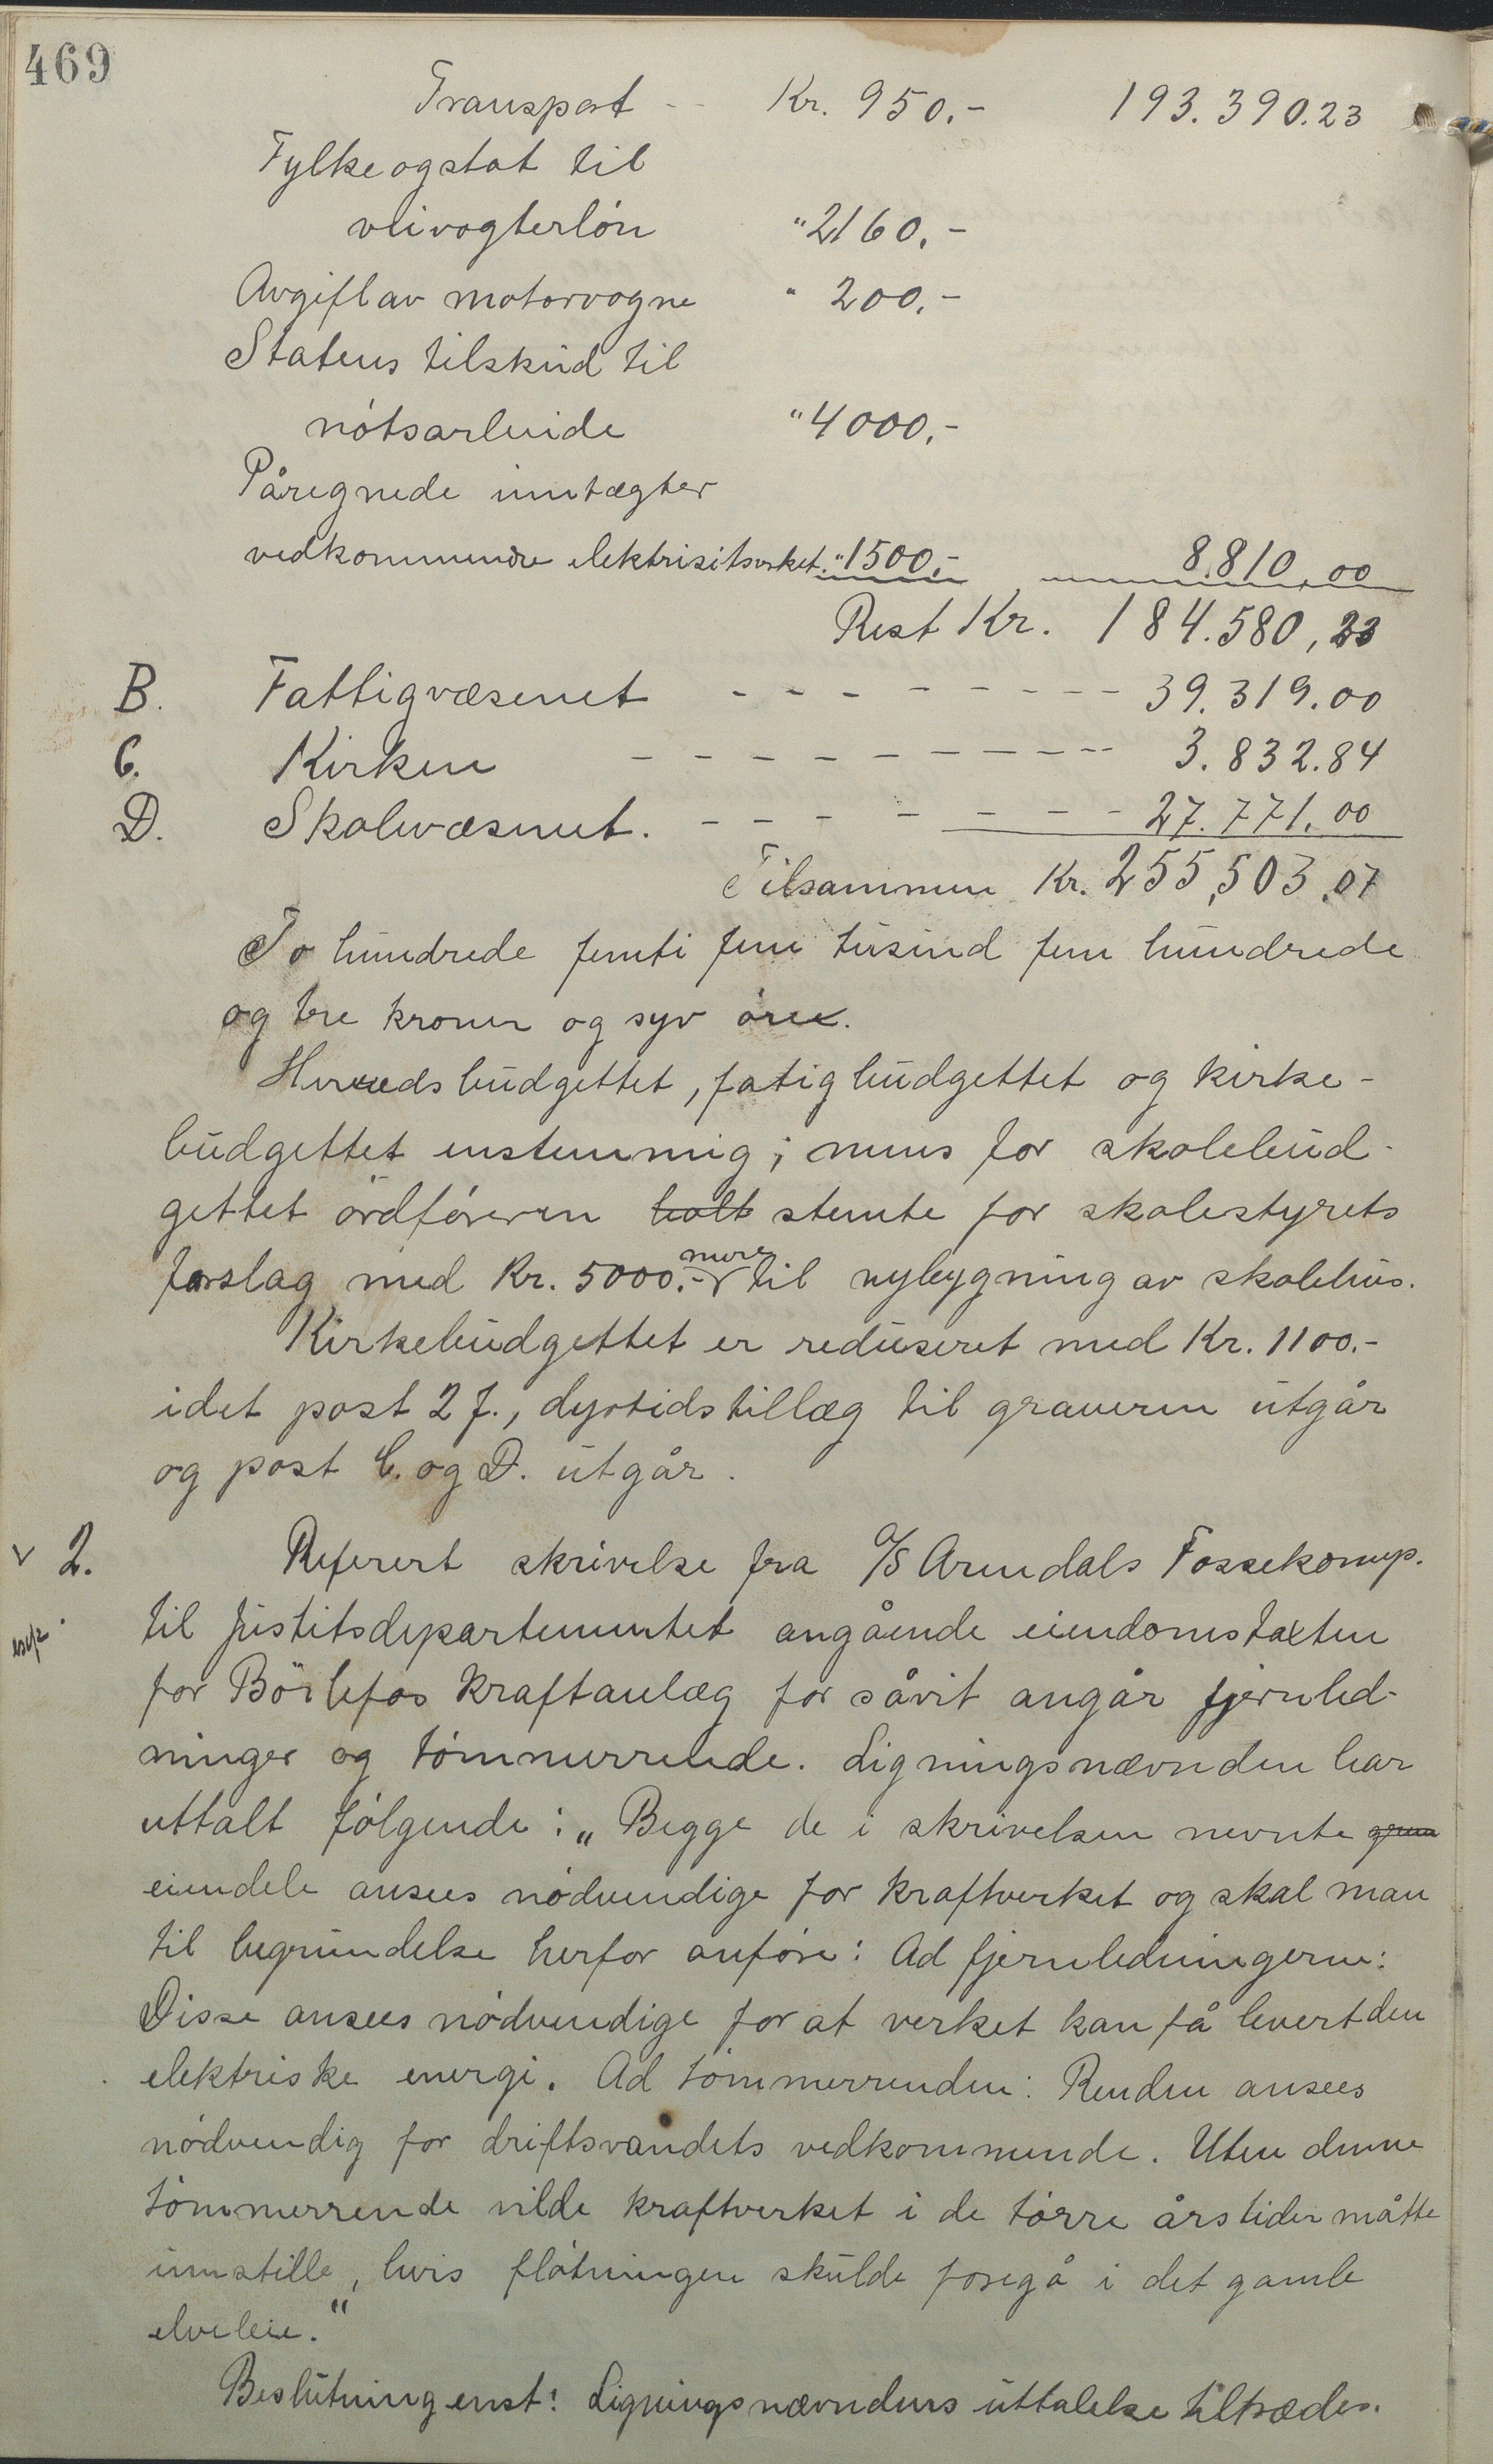 469
Transport - - Kr. 950.- 193.390.23
Fylke og stat til
veivogterlön " 2160.-
Avgift av motorvogne " 200.-
Statens tilskud til
nötsarbeide " 4000.-
Påregnede inntægter
vedkommende elektrisitsverket. " 1500.- 8.810,00
Rest Kr. 184.580,23
B. Fattigvæsenet - - - - - - - - - 39.319.00
C. Kirken - - - - - - - - - - 3.832.84
D. Skolevæsenet. - - - - - - - - 27.771.00
Tilsammen Kr. 255,503,07
To hundrede femti fem tusind fem hundrede
og tre kroner og syv öre.
Herredsbudgettet, fatigbudgettet og kirke-
budgettet enstemmig; mens for skolebud-
gettet ordföreren holt stemte for skolestyrets
forslag med Kr. 5000.- mere til nybygning av skolehus.
Kirkebudgettet er reduseret med Kr. 1100.-
idet post 2 f., dyrtidstillæg til graveren utgår
og post C. og D. utgår.
v 2. Referert skrivelse fra A/S Arendals Fossekomp.
til Justitsdepartementet angående eiendomstaxten
for Böilefos Kraftanlæg for såvit angår fjernled-
ninger og tömmerrende. Ligningsnævnden har
uttalt fölgende: „Begge de i skrivelsen nevnte
eiendele ansees nödvendige for kraftverket og skal man
til begrundelse herfor anföre: Ad fjernledningerne:
Disse ansees nödvendige for at verket kan få levert den
elektriske energi. Ad tömmerrenden: Renden ansees
nödvendig for driftsvandets vedkommende. Uten denne
tömmerrende vilde kraftverket i de törre årstider måtte
innstille, hvis flötningen skulde foregå i det gamle
elveleie."
Beslutning enst: Ligningsnævndens uttalelse tiltrædes.